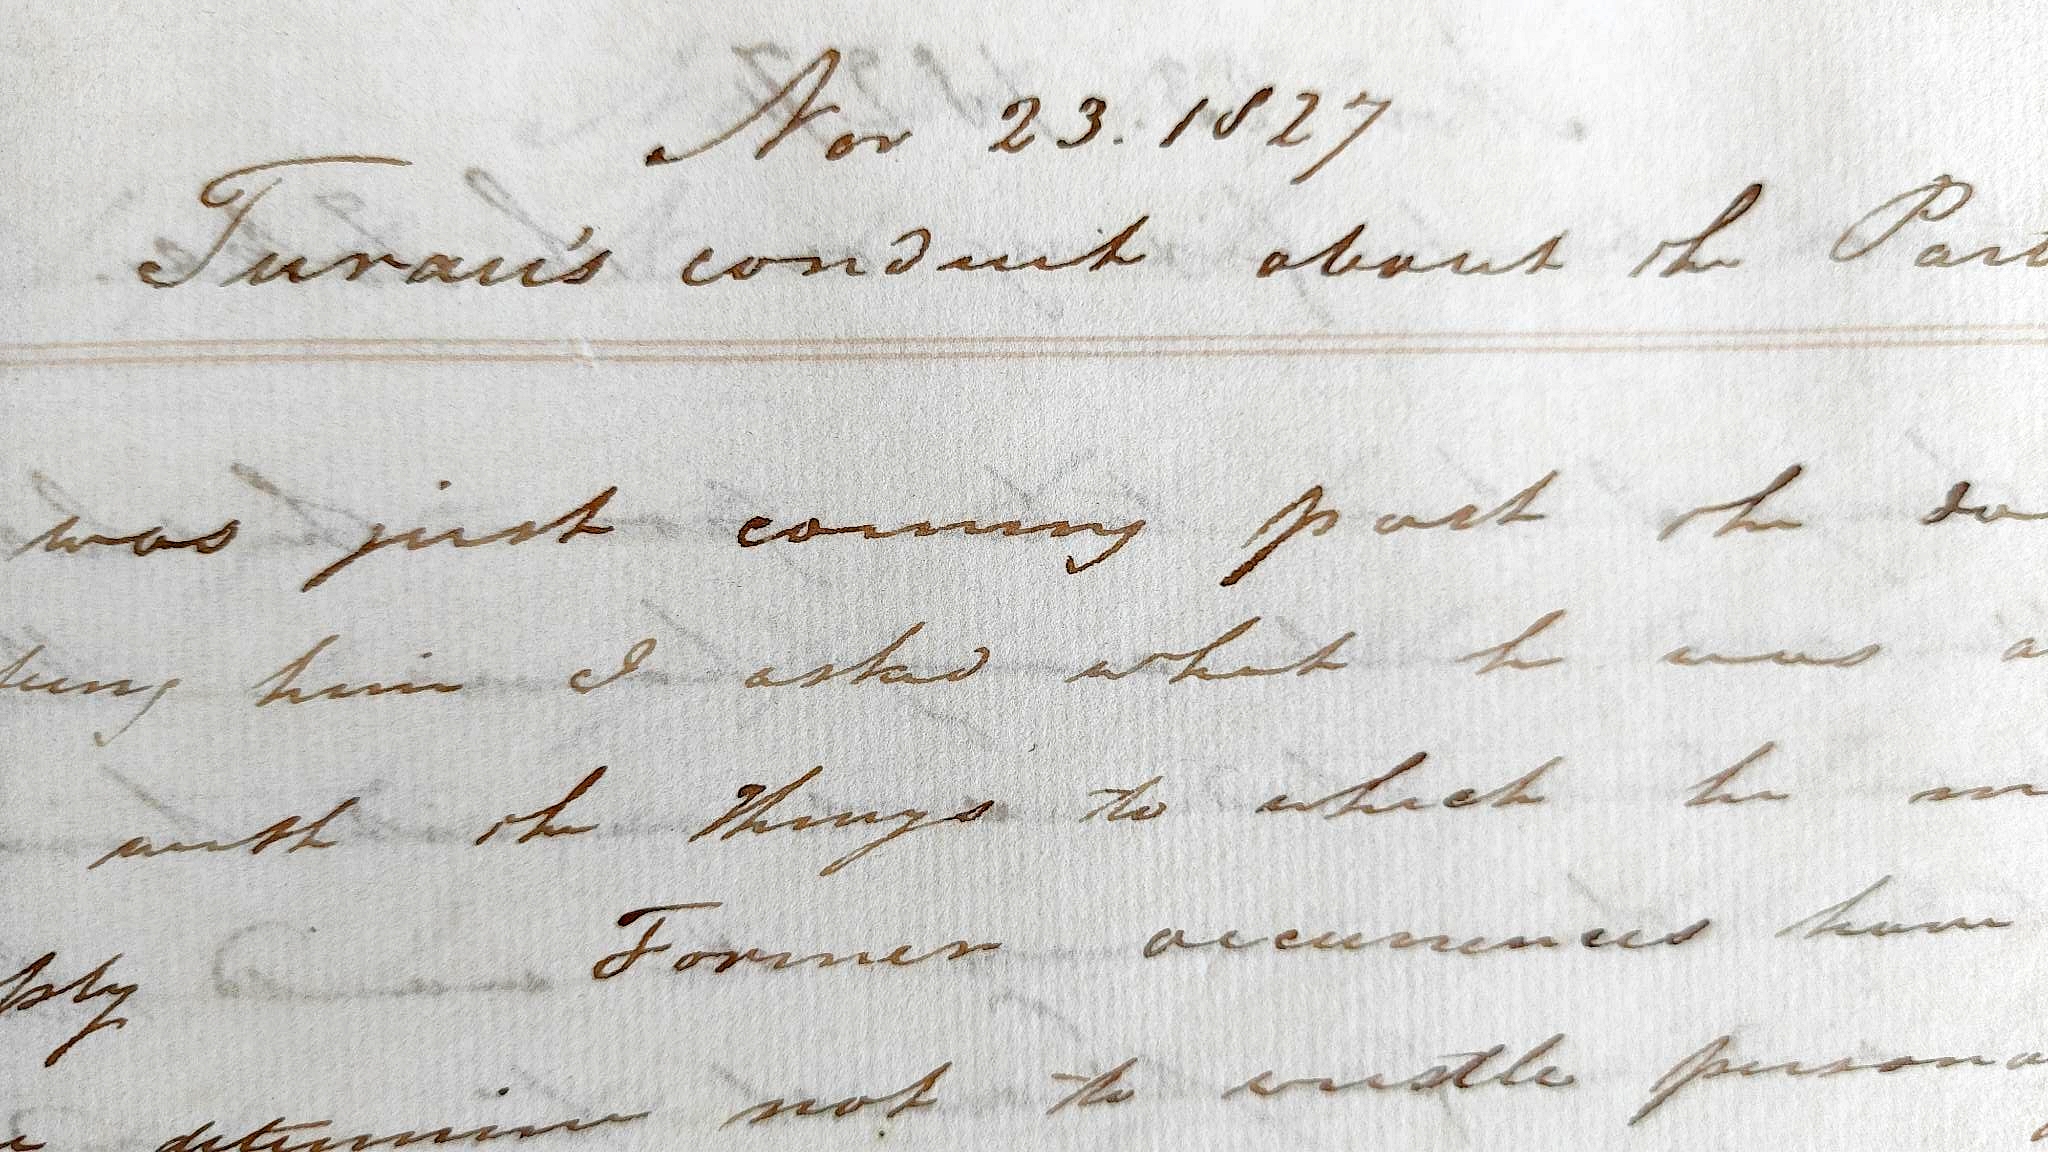 Nov 23. 1827
Turau's conduct about the
was just coming past the
him I asked what he was
with the things to which he
Former occurrences have
determine not to wrestle